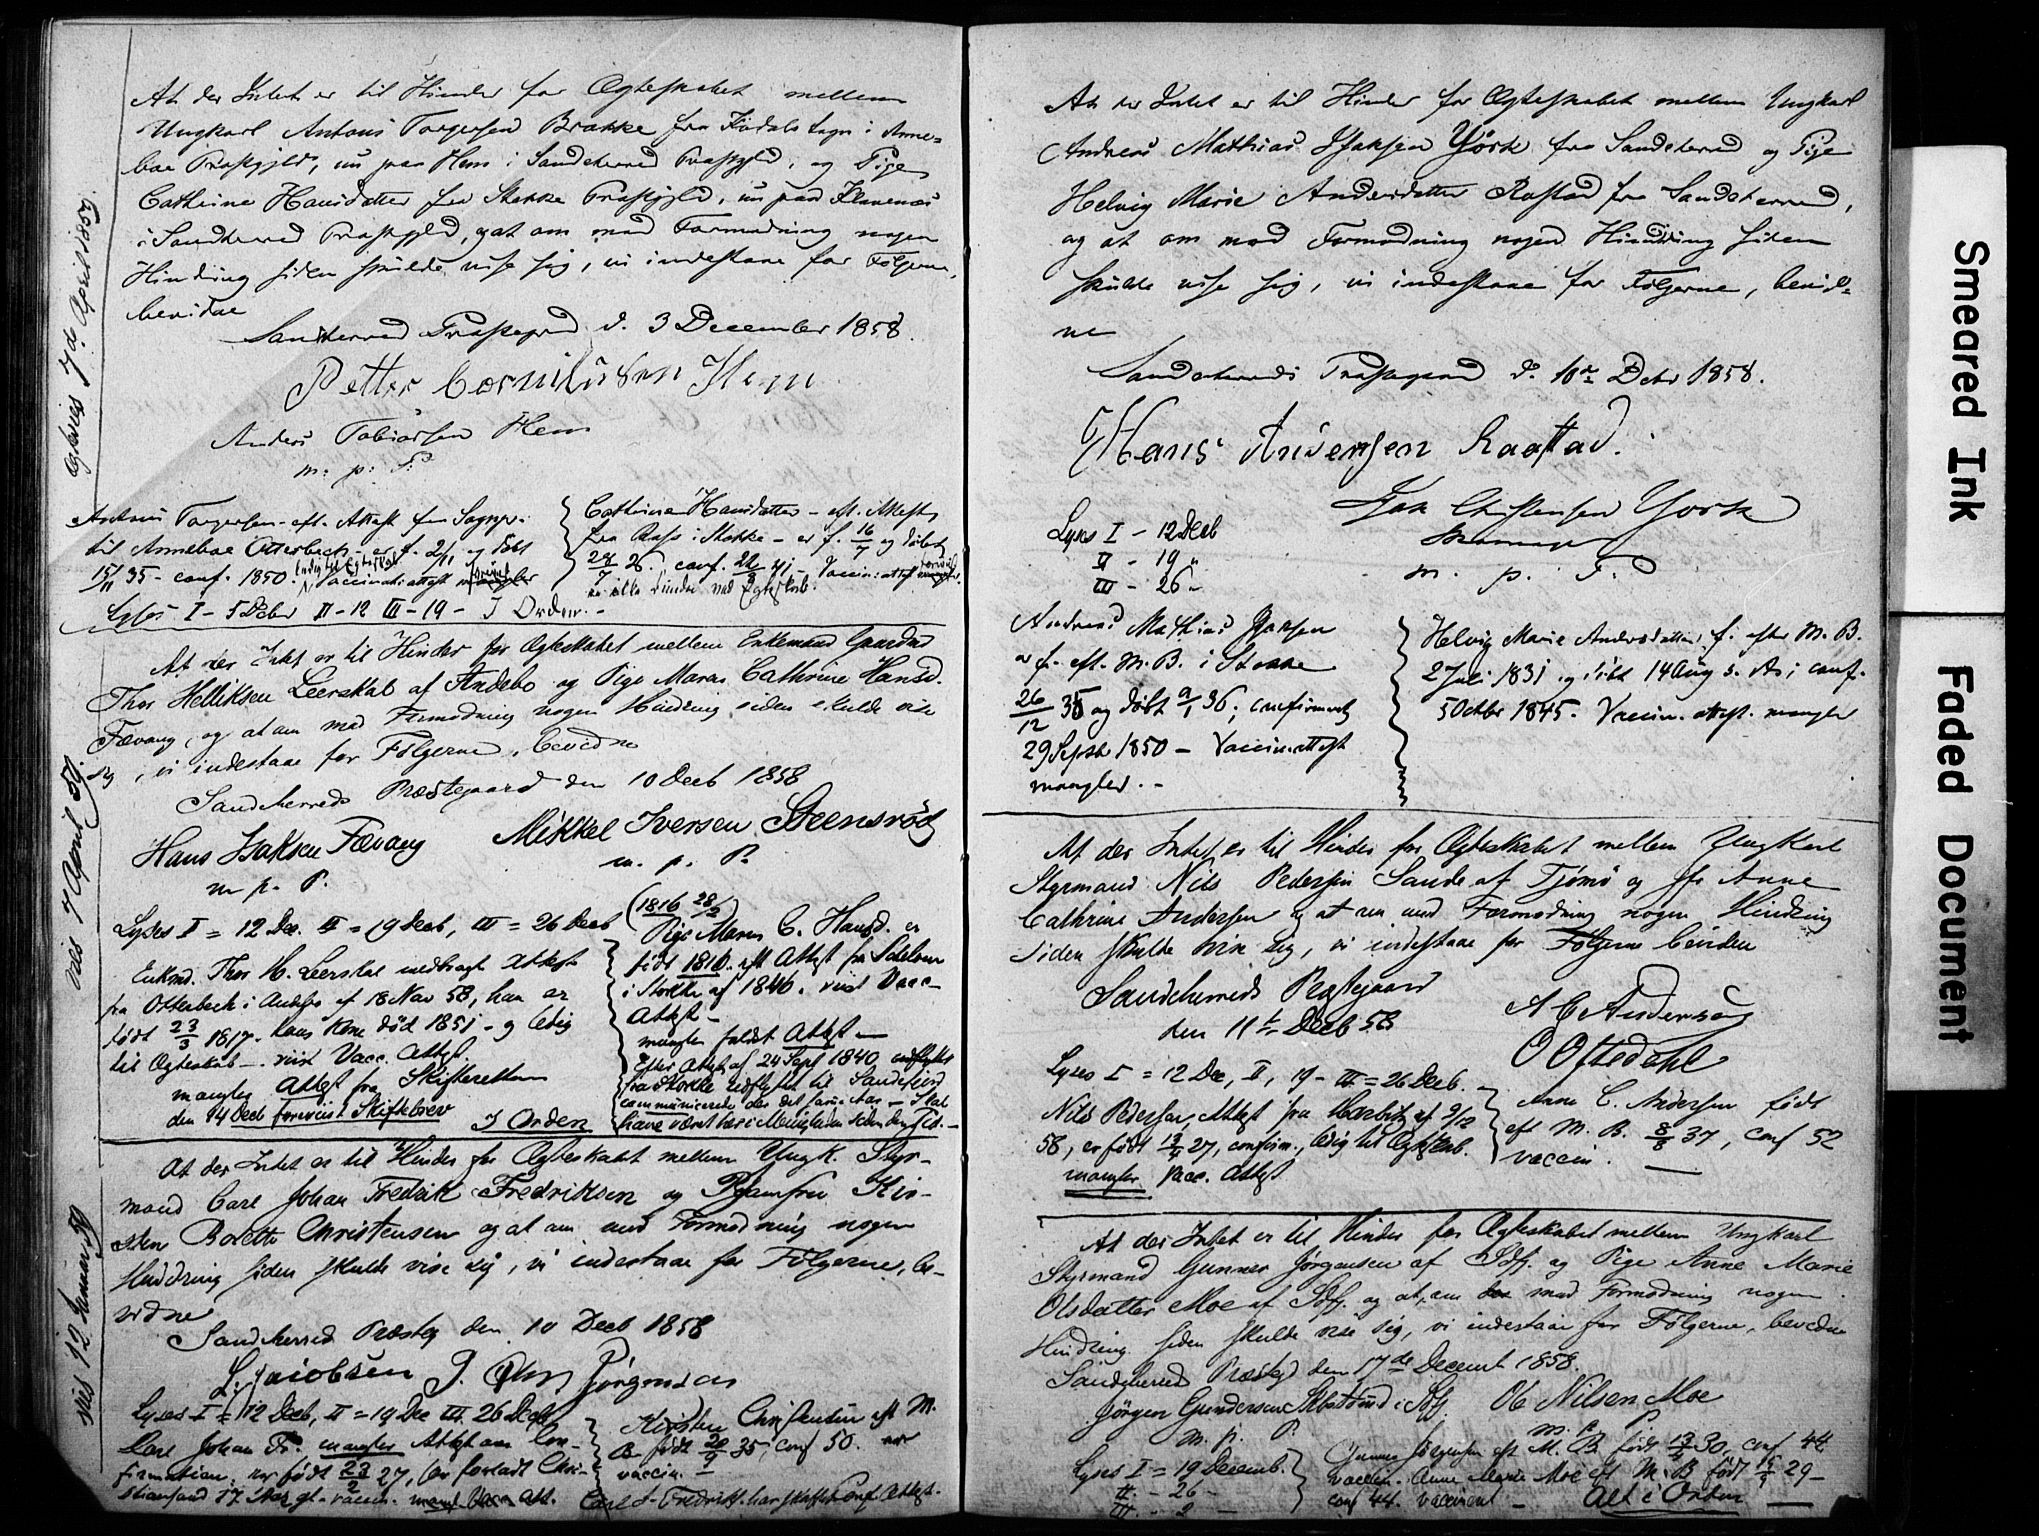 At der Intet er til Hinder for Ægteskabet mellem
Ungkarl Antons Torgersen Brække fra Kodals Sogn i Anne-
boe Præstgjeld, nu paa Hem i Sandeherred Præstgjeld, og Pige
Cathrine Hansdatter fra Stokke Præstgjeld, nu paa Klavenæs
i Sandeherred Præstgjeld, og at om mod Formodning nogen
Hindring siden skulde vise sig, vi indestaae for Følgerne,
bevidne
Sandeherred Præstegaard d. 3 December 1858.
Petter Corniliusen Hem
Anders Tobiassen Hem
m: p: P:
Ægteviet 7de April 1859.
Antons Torgersen - eft. Attest fra Sognepr.
til Anneboe Otterbech - er f. 2/11 og döbt
15/11 35 - conf. 1850. ledig til Ægteskab
Vaccinationsattest mangler
Cathrine Hansdatter - eft. Attest
fra Præst i Stokke - er f. 16/7 og döbt
24/7 26. conf. 22/ 41 - Vaccin: attest mangler.
er ikke hindret med Ægteskab.
Lyses I - 5 Decbr II - 12 III - 19 - I Orden. -
At der Intet er til Hinder for Ægteskabet mellem Enkemand Gaardmd
Thor Helliksen Leerskal af Andebo og Pige Maren Cathrine Hansd.
Fævang, og at om mod Formodning nogen Hindring siden skulde vise
sig, vi indestaae for Følgerne, bevidne
Sandeherreds Præstegaard den 10 Decb 1858
Hans Isaksen Fævang Mikkel Iversen Steensrød
m. p. P. m. p. P.
viet 7 April 59.
Lyses I = 12 Dec. II = 19 Decb, III = 26 Decb
Enkmd. Thor H. Leerskal medbragt Attest
fra Otterbech i Andebo af 18 Nov 58, han er
født 23/3 1817. hans Kone død 1851 - og ledig
til Ægteskab - viist Vacc. Attest.
mangler Attest fra Skifteretten
den 14 Decb foreviist Skiftebrev I Orden
(1816 28/2)
Pige Maren C. Hansd. er
født 1816. eft Attest fra
i Stokke af 1846. viist Vacc-
Attest -
mangler Attest -
Efter Attest af 24 Sept 1840
fra Stokke udflyttet til Sandefjord
communicerede der det samme Aar - Skal
have været her i Menigheden siden den Tid. -
At der Intet er til Hinder for Ægteskabet mellem Ungk. Styr-
mand Carl Johan Fredrik Fredriksen og Pige Jomfru Kir-
sten Bolette Christensen og at om mod Formodning nogen
Hindring siden skulde vise sig, vi indestaae for Følgerne, be-
vidne
Sandeherred Præsteg den 10 Decb 1858
L. Jacobsen J. Jörgensen
viet 12 Januar 59
Lyses I = 12 Decb, II = 19 Dec III. 26 Decb
Carl Johan Fr. mangler Attest om Con-
firmation. er født 23/2 27, har forladt Chri-
stiansand 17 Aar gl. - vaccin. mangl Vacc Att.
Kirsten Christensen eft M.
B. født 20/9 35, conf 50.
vaccin. -
Carl J. Fredriks. har skaffet Conf Attest. -
At der Intet er til Hinder for Ægteskabet mellem Ungkarl
Andreas Mathias Isaksen Yörk fra Sandeherred og Pige
Helvig Marie Andersdatter Rastad fra Sandeherred,
og at om mod Formodning nogen Hindring siden
skulde vise sig, vi indestaae for Følgerne, bevid-
ne
Sandeherreds Præstegaard d. 10de Decbr 1858.
Hans Andersen Raastad.
Isak Christensen Yörk
m. p. P.
Lyses I - 12 Decb
II - 19 "
III - 26 "
Andreas Mathias Isaksen
er f. eft. M. B. i Stokke
26/12 35 og döbt /1 36; confirmeret
29 Septbr 1850 - Vaccin.attest
mangler. -
Helvig Marie Andersdatter, f. efter M. B.
2 Juli 1831 og döbt 14 Aug s. A; conf.
5 Octbr 1845. Vaccin. attest. mangler
At der Intet er til Hinder for Ægteskabet mellem Ungkarl
Styrmand Nils Pedersen Sande af Tjømø og Jfr Anne
Cathrine Andersen og at om mod Formodning nogen Hindring
siden skulde vise sig, vi indestaae for Følgerne bevidne
Sandeherreds Præstegaard
den 11te Decb 58
A C Andersen
O Ottedahl
Lyses I = 12 Dec, II, 19 - III = 26 Decb.
Nils Pedersen, Attest fra af 9/12
58, er født 12/ 27, confirm., ledig til Ægteskab.
mangler Vacc. Attest
Anne C. Andersen født
eft M. B. 8/8 37, conf 52
vaccin. -
At der Intet er til Hinder for Ægteskabet mellem Ungkarl
Styrmand Gunner Jørgensen af Sdfj. og Pige Anne Marie
Olsdatter Moe af Sdfj. og at, om mod Formodning nogen
Hindring siden skulde vise sig, vi indestaae for Følgerne, bevidne
Sandeherred Præsteg den 17de Decemb 1858.
Jörgen Gundersen i Sdfj. Ole Nilsen Moe
m. p. P. m. p. P.
Lyses I = 19 Decemb.
II. - 26 -
III - 2 -
Gunner Jörgensen eft M. B. født 13/ 30, conf 44.
vaccin. Anne Marie Moe eft M B født 15/ 29 -
conf 44. vaccineret - Alt i Orden
Smeared Ink
Faded Document